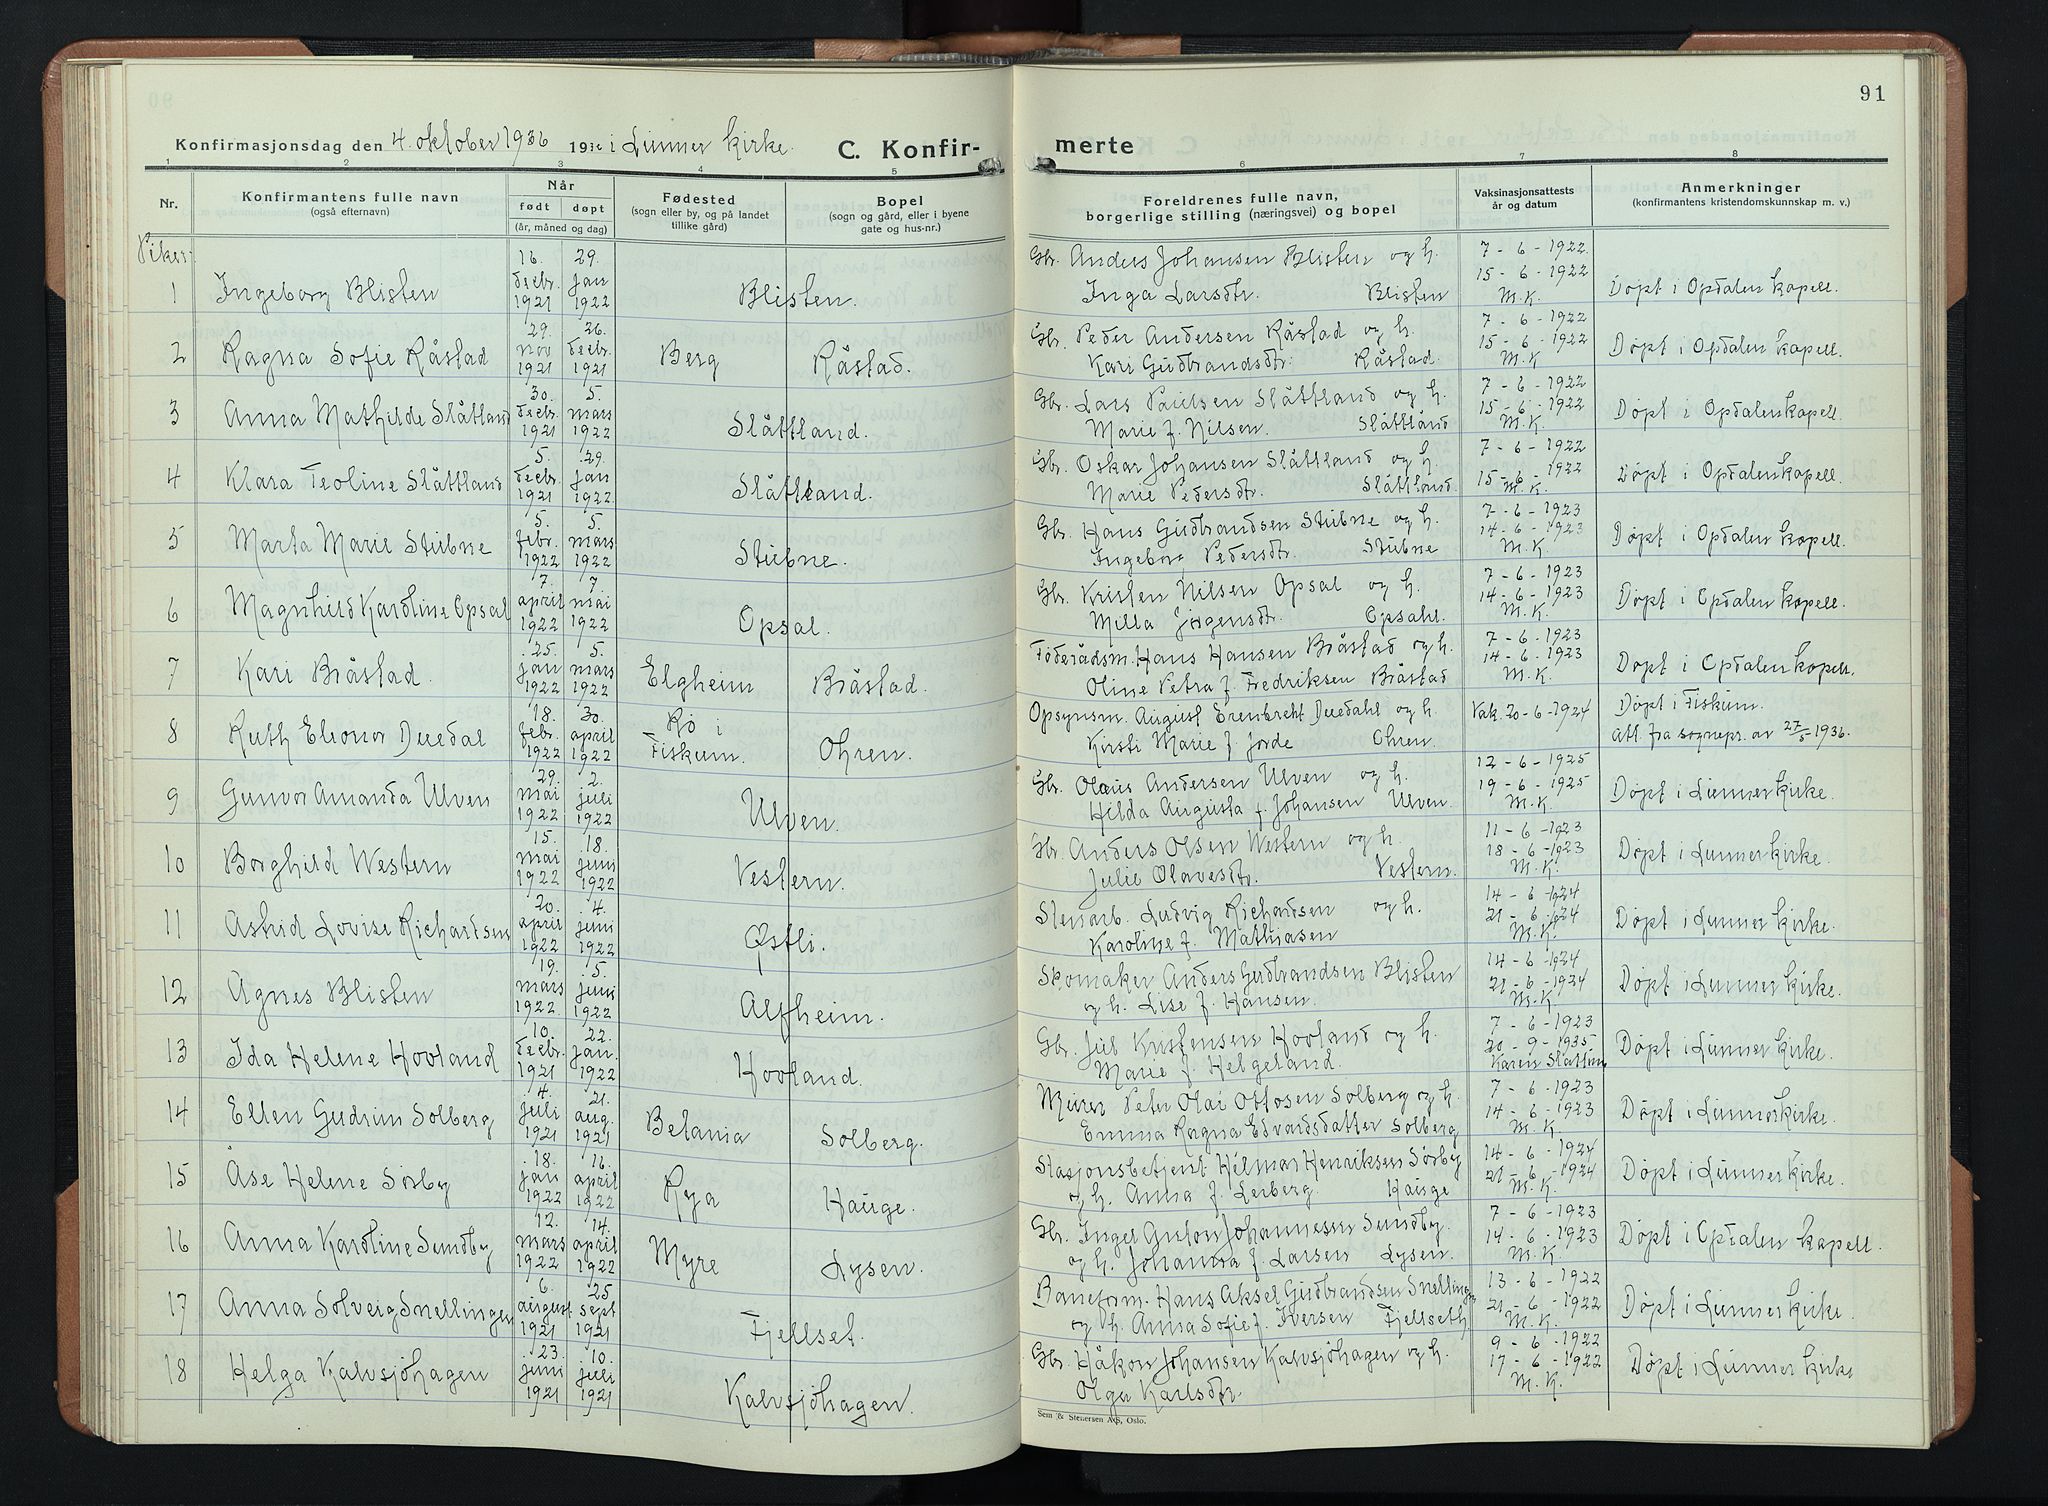 91
Konfirmasjonsdag den 4. oktober 1936 19 i Lunner kirke. C. Konfirmerte
1 2 3 4 5 6 7 8
Nr. Konfirmantens fulle navn (også efternavn) Når født døpt (år, måned og dag) Fødested (sogn eller by, og på landet tillike gård) Bopel (sogn og gård, eller i byene gate og hus-nr.) Foreldrenes fulle navn, borgerlige stilling (næringsvei) og bopel Vaksinasjonsattests år og datum Anmerkninger (konfirmantens kristendomskunnskap m. v.)
Piker:
1 Ingeborg Blisten 16. decbr. 1921 29. jan 1922 Blisten. Gbr. Anders Johansen Blisten og h. Inga Larsdtr. Blisten 7-6-1922. 15-6-1922 M.K. Døpt i Opdalen kapell.
2 Ragna Sofie Råstad 29. nov 1921 26. decbr. 1921 Berg Råstad. Gbr. Peder Andersen Råstad og h. Kari Gudbrandsdtr. Råstad. 7-6-1922 15-6-1922 M.K. Døpt i Opdalen kapell.
3 Anna Mathilde Slåttland 30. decbr. 1921 5. mars 1922 Slåttland. Gbr. Lars Paulsen Slåttland og h. Marie f. Nilsen. Slåttland 7-6-1922 15-6-1922 M.K. Døpt i Opdalen kapell.
4 Klara Teoline Slåttland 5. decbr. 1921 29. jan 1922. Slåttland. Gbr. Oskar Johansen Slåttland og h. Marie Pedersdtr. Slåttland. 7-6-1922 15-6-1922 M.K. Døpt i Opdalen kapell.
5 Marta Marie Stubne 5. febr. 1922 5. mars 1922 Stubne. Gbr. Hans Gudbrandsen Stubne og h. Ingeborg Pedersdtr. Stubne 7-6-1923 14-6-1923 M.K. Døpt i Opdalen kapell.
6 Magnhild Karoline Opsal 7. april 1922 7 mai 1922 Opsal. Gbr. Kristen Nilsen Opsal og h. Milla Jørgensdtr. Opsahl. 7-6-1923 14-6-1923 M.K. Døpt i Opdalen kapell.
7 Kari Bråstad. 25. jan 1922 5. mars 1922 Elgheim Bråstad. Føderådsm. Hans Hansen Bråstad og h. Oline Petra f. Fredriksen Bråstad 7-6-1923 14-6-1923 M.K. Døpt i Opdalen kapell.
8 Ruth Eleonor Duedal 18. febr. 1922 30. april 1922 Rø i Fiskum. Ohren. Opsynsm. August Erenbrekt Duedahl og h. Kirsti Marie f. Jorde Ohren. Vak. 20-6-1924 Døpt i Fiskum. Att. fra sognepr. av 27/5-1936.
9 Gunvor Amanda Ulven 29. mai 1922 2. juli 1922 Ulven. Gbr. Olaus Andersen Ulven og h. Hilda Augusta f. Johansen Ulven. 12-6-1925 19-6-1925 M.K. Døpt i Lunner kirke.
10 Borghild Western 15. mai 1922 18. juni 1922 Vestern. Gbr. Anders Olsen Western og h. Julie Olavesdtr. Vestern. 11-6-1923 18-6-1923 M.K. Døpt i Lunner kirke.
11 Astrid Lovise Richardsen 20. april 1922 4. juni 1922 Østli. Stenarb. Ludvig Richardsen og h. Karoline f. Mathiasen 14-6-1924 21-6-1924 M.K. Døpt i Lunner kirke.
12 Agnes Blisten 19. mars 1922. 5. juni 1922 Alfheim. Skomaker Anders Gudbrandsen Blisten og h. Lise f. Hansen. 14-6-1924 21-6-1924 M.K. Døpt i Lunner kirke.
13 Ida Helene Hovland 10. decbr. 1921 22. jan. 1922 Hovland. Gbr. Kristensen Hovland og h. Marie f. Helgeland. 7-6-1923 20-9-1935 Karen Slattum Døpt i Lunner kirke.
14 Ellen Gudrun Solberg 4. juli 1921 21. aug. 1921 Betania Solberg. Murer Peter Olai Ottosen Solberg og h. Emma Ragna Edvardsdatter Solberg 7-6-1923 14-6-1923 M.K. Døpt i Lunner kirke.
15 Åse Helene Sørby 18. jan 1922 16. april 1922 Rya Hauge. Stasjonsbetjent Hilmar Henriksen Sørby og h. Anna f. Lerberg. Hauge 14-6-1924 21-6-1924 M.K. Døpt i Lunner kirke.
16 Anna Karoline Sundby 12. mars 1922 14. april 1922 Myre Lysen. Gbr. Ingel Anton Johannessen Sundby. og h. Johanna f. Larsen Lysen. 7-6-1923 14-6-1923 M.K. Døpt i Opdalen kapell.
17 Anna Solveig Snellingen 6. august 1921 25 sept 1921 Fjellset. Baneform. Hans Aksel Gudbrandsen Snellingen og h. Anna Sofie f. Iversen Fjellseth 13-6-1922 21-6-1922 M.K. Døpt i Lunner kirke.
18 Helga Kalvsjøhagen 23. juni 1921 10. juli 1921 Kalvsjøhagen. Gbr. Håkon Johansen Kalvsjøhagen og h. Olga Karlsdtr. 9-6-1922 17-6-1922 M.K. Døpt i Lunner kirke
Sem & Stenersen A/S, Oslo.